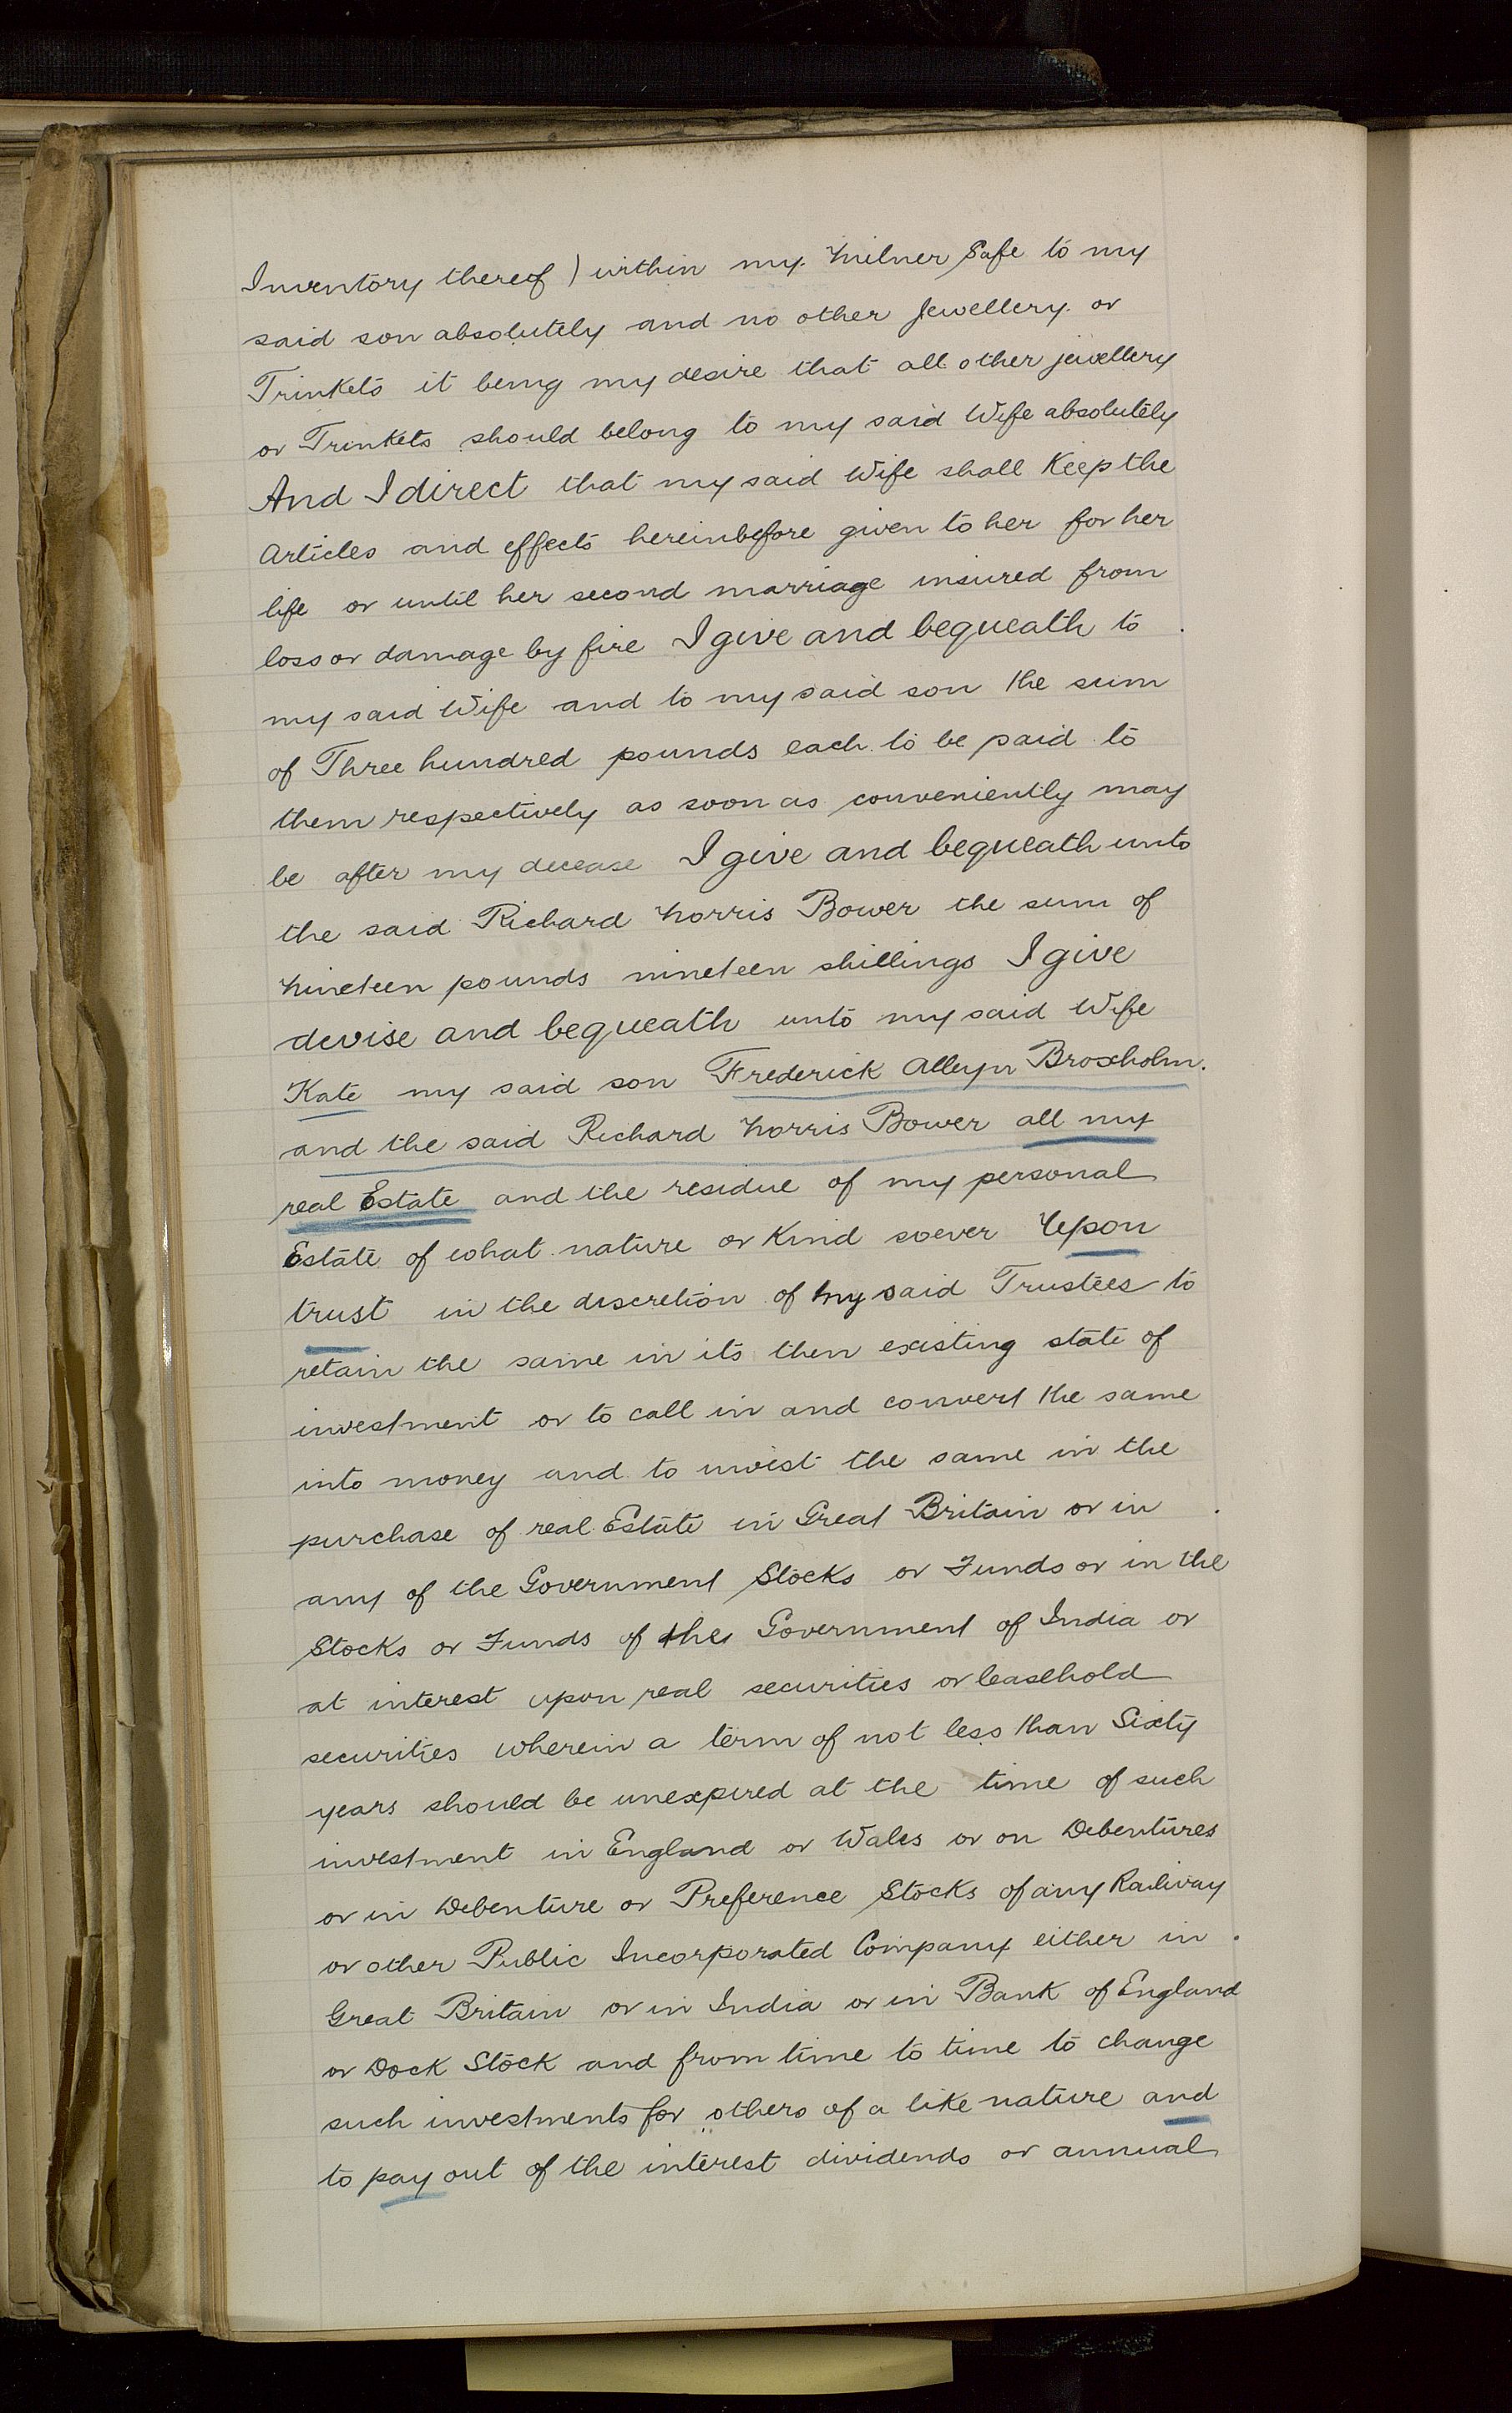 Inventory thereof) within my Milner Safe to my
said son absolutely and no other Jewellery or
Trinkets it being my desire that all other jewellery
or Trinkets should belong to my said Wife absolutely
And I direct that my said Wife shall Keep the
articles and effects hereinbefore given to her for her
life or until her second marriage insured from
loss or damage by fire I give and bequeath to
my said Wife and to my said son the sum
of Three hundred pounds each to be paid to
them respectively as soon as conveniently may
be after my decease I give and bequeath unto
the said Richard Norris Bower the sum of
Nineteen pounds nineteen shillings I give
devise and bequeath unto my said Wife
Kate my said son Frederick Alleyn Broxholm.
and the said Richard Norris Bower all my
real Estate and the residue of my personal
Estate of what nature or Kind soever Upon
trust in the discretion of my said Trustees to
retain the same in its then existing state of
investment or to call in and convert the same
into money and to invest the same in the
purchase of real Estate in Great Britain or in
any of the Government Stocks or Funds or in the
Stocks or Funds of the Government of India or
at interest upon real securities or leasehold
securities wherein a term of not less than Sixty
years should be unexpired at the time of such
investment in England or Wales or on Debentures
or in Debenture or Preference Stocks of any Railway
or other Public Incorporated Company either in
Great Britain or in India or in Bank of England
or Dock Stock and from time to time to change
such investments for others of a like nature and
to pay out of the interest dividends or annual